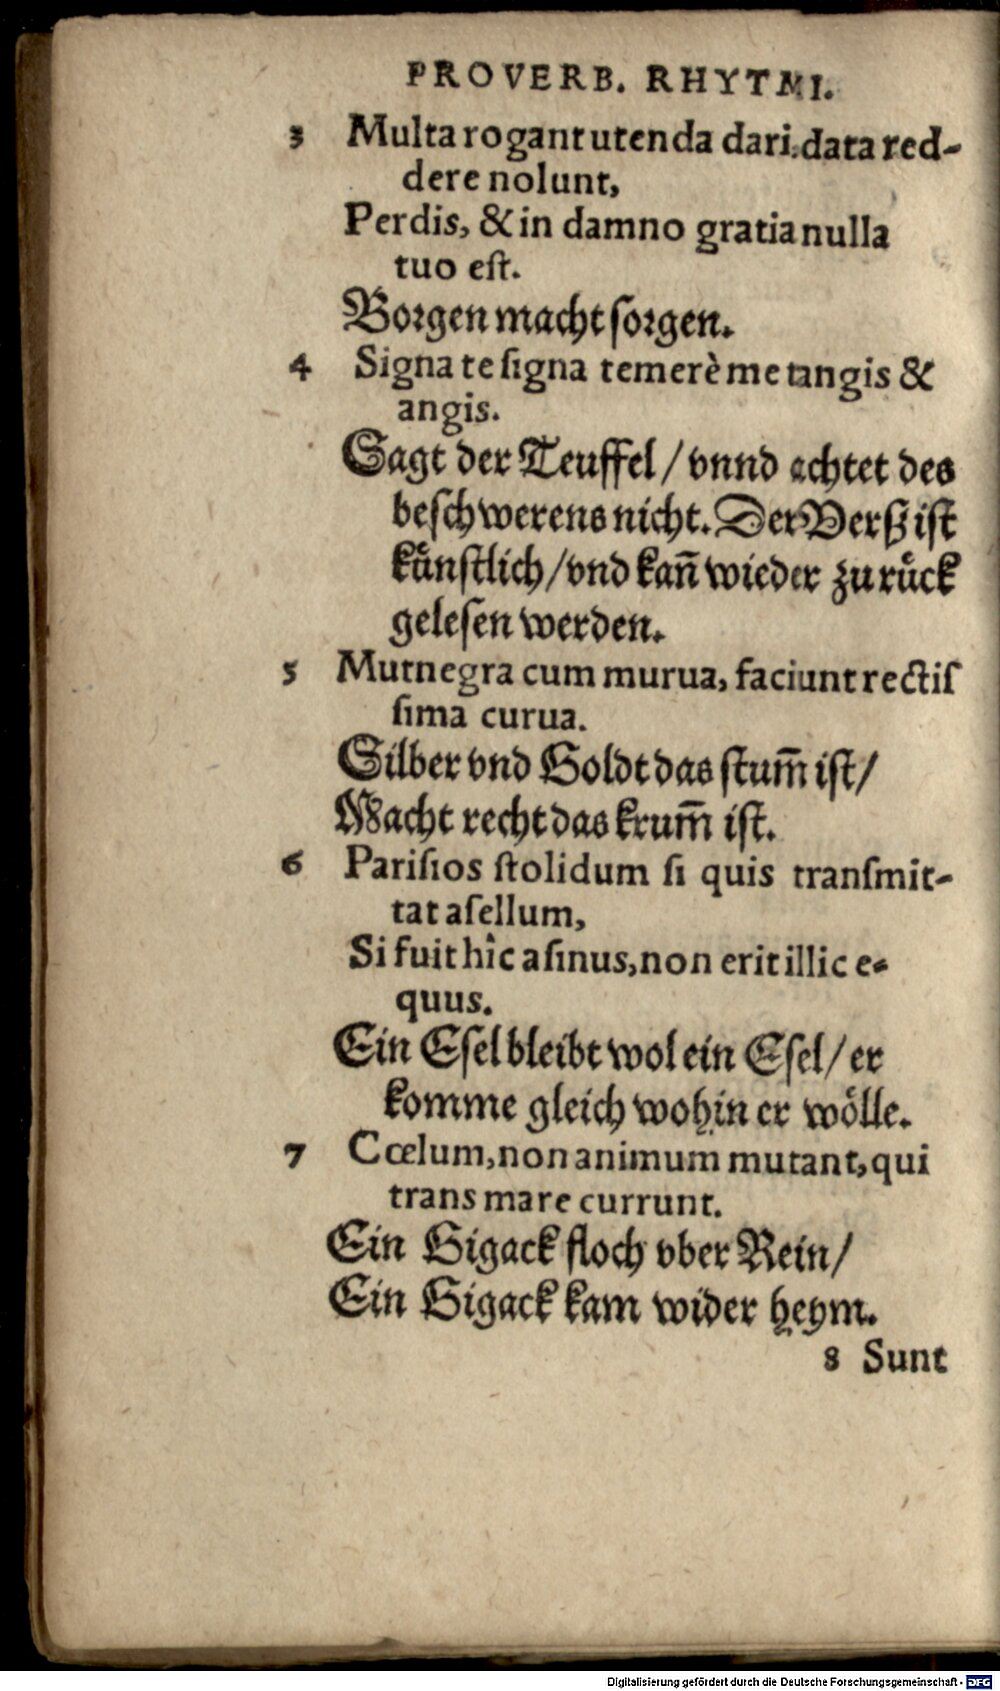 PROVERB. RHYTMI.
3 Multa rogant utenda dari, data red-
dere nolunt,
Perdis, & in damno gratia nulla
tuo est.
Borgen macht sorgen.
4 Signa te signa temerè me tangis &
angis.
Sagt der Teuffel / vnnd achtet des
beschwerens nicht. Der Verß ist
kuͤnstlich / vnd kañ wieder zu ruͤck
gelesen werden.
5 Mutnegra cum murua, faciunt rectis
sima curua.
Silber vnd Goldt das stum̃ ist /
Macht recht das krum̃ ist.
6 Parisios stolidum si quis transmit-
tat asellum,
Si fuit hîc asinus, non erit illic e-
quus.
Ein Esel bleibt wol ein Esel / er
komme gleich wohin er woͤlle.
7 Cœlum, non animum mutant, qui
trans mare currunt.
Ein Gigack floch vber Rein /
Ein Gigack kam wider heym.
8 Sunt
Digitalisierung gefördert durch die Deutsche Forschungsgemeinschaft - DFG